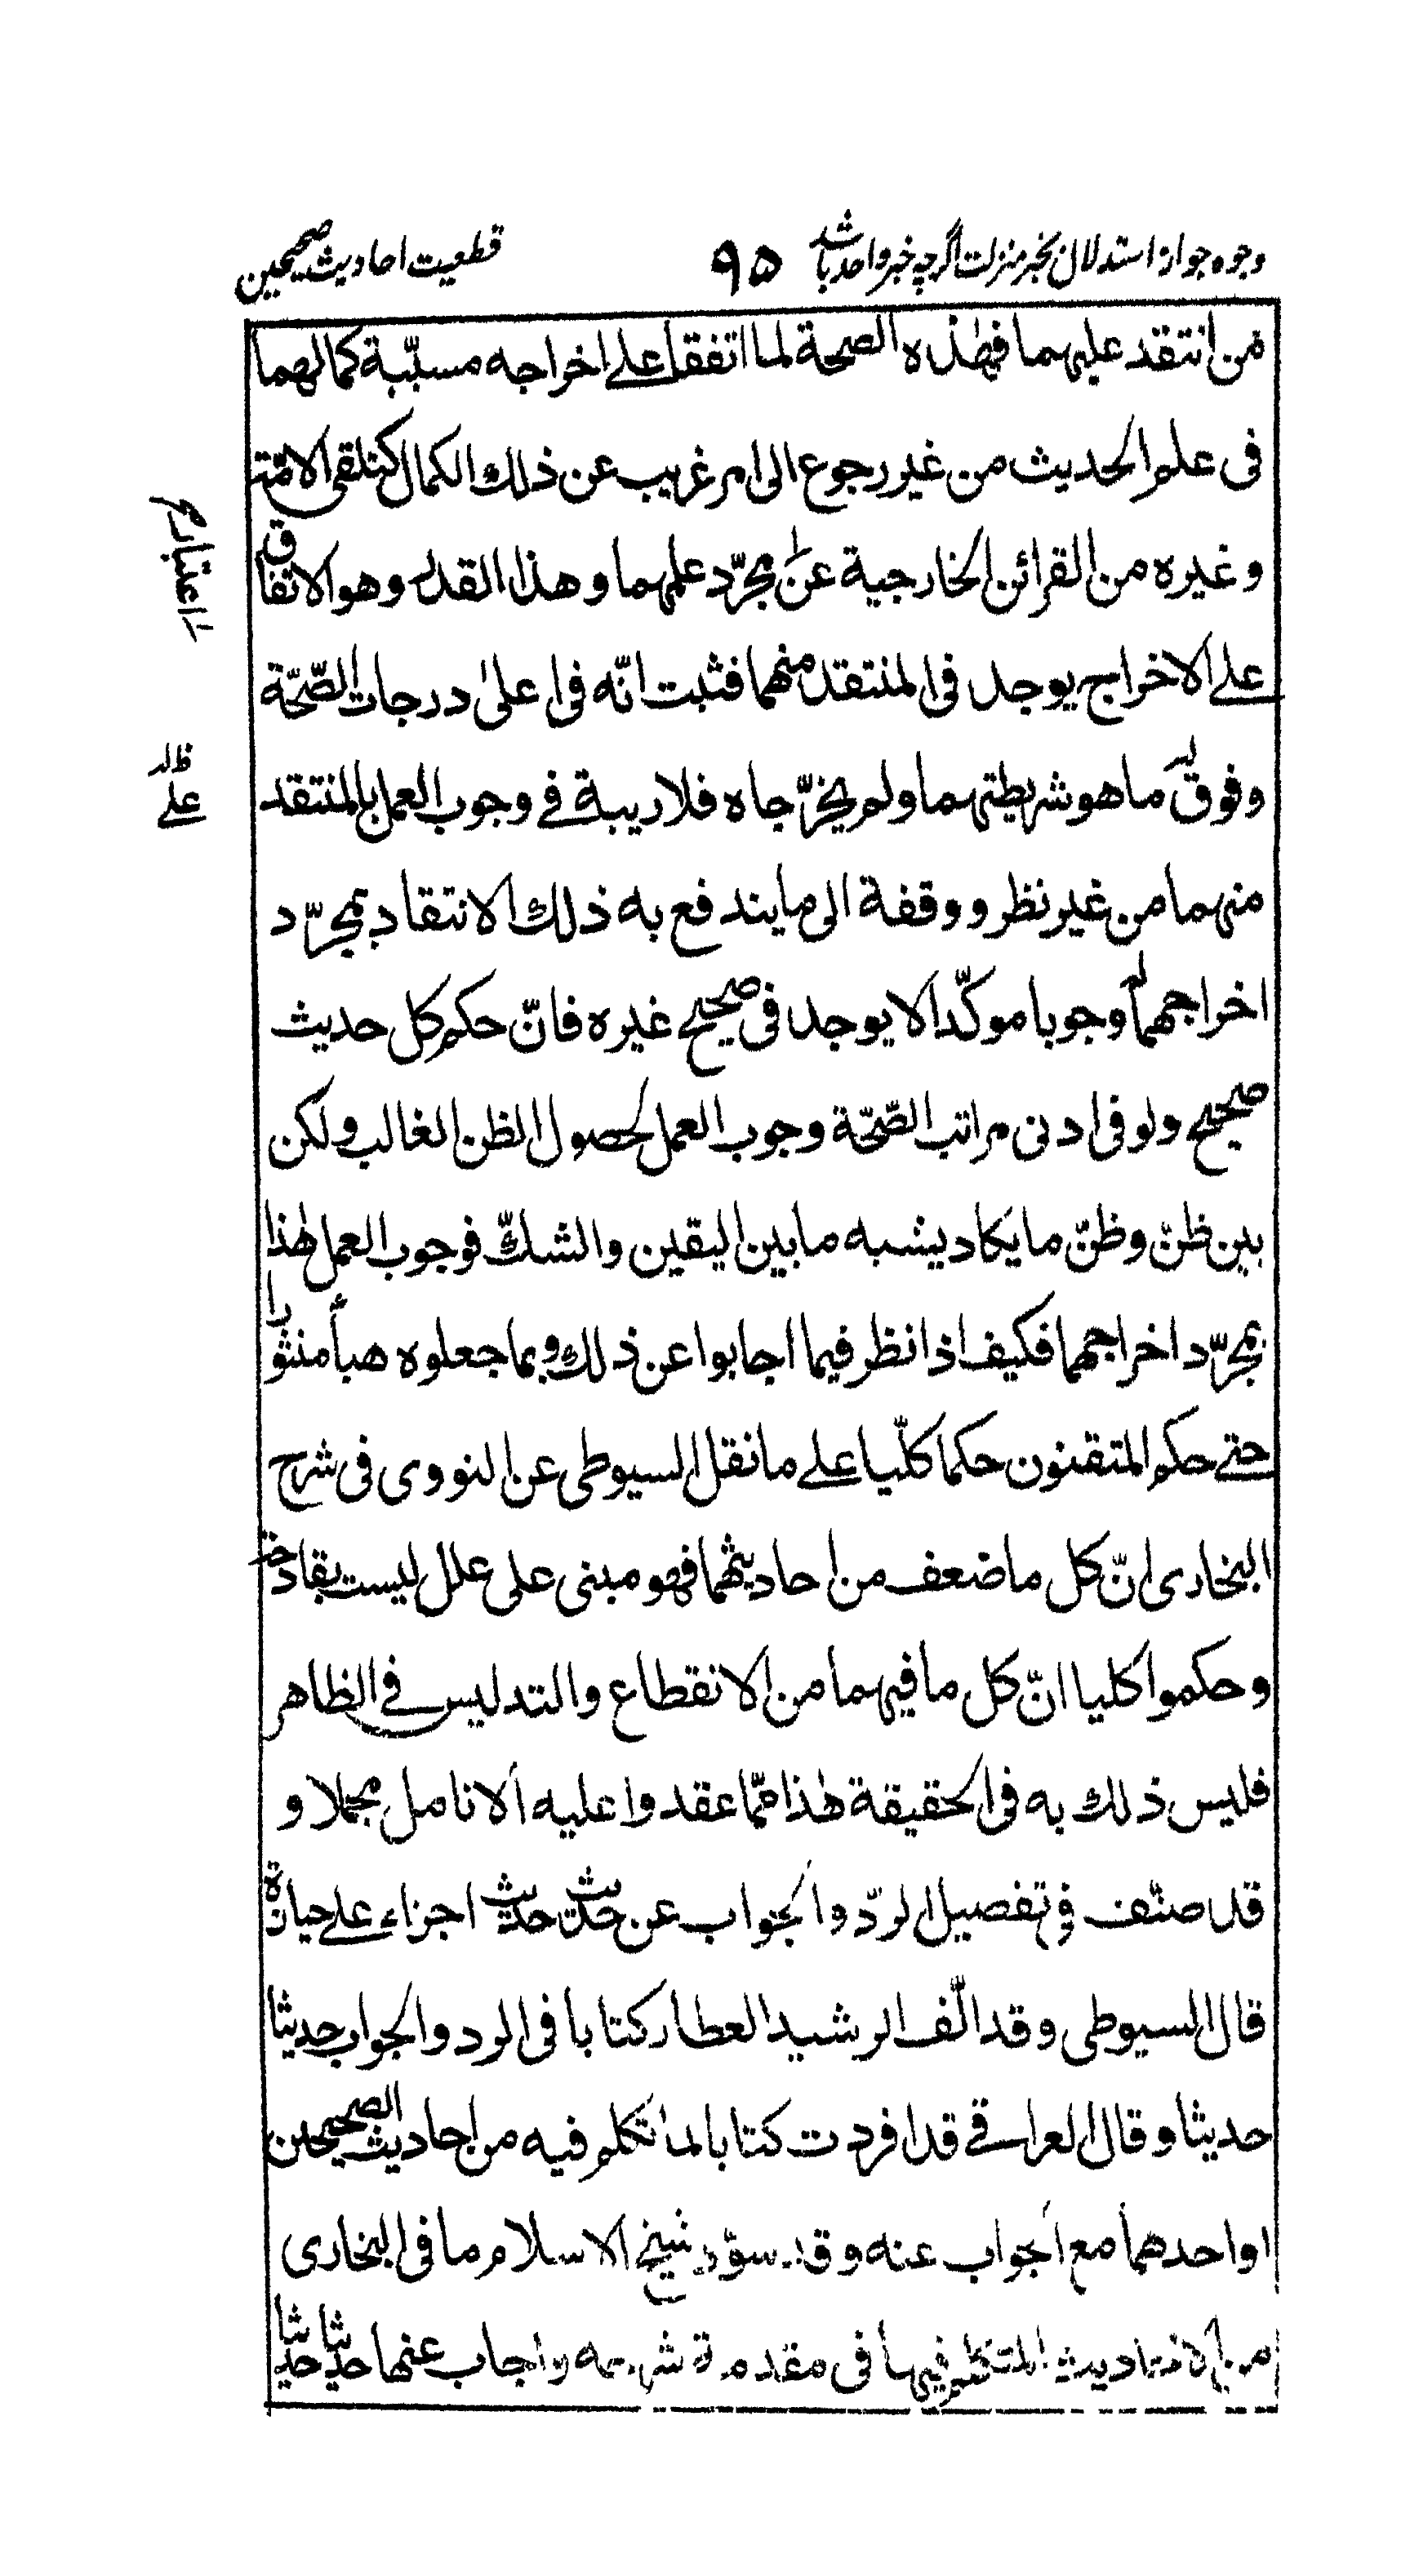 وجوه جواز استدلال بخبر منزلت اگرچه خبر واحد باشد ۹۵ قطعیت احادیث صحیحین
من انتقد علیهما فهٰذه الصحة لما اتفقا علے اخراجه مسبّبة کمالهما
فی علم الحدیث من غیر رجوع الی امر غریب عن ذلك الکمال کتلقی الامّة
وغیره من القرائن الخارجیة عن مجرّد علمهما وهذا القدر وهو الاتفاق
علے الاخراج یوجد فی المنتقد منهما فثبت انّه فی اعلیٰ درجات الصّحّة
وفوق ما هو شریطتهما ولم یخرّجاه فلا ریبة فے وجوب العمل بالمنتقد
منهما من غیر نظر ووقفة الی ما یندفع به ذلك الانتقاد بمجرّد
اخراجهما وجوبا موکّدا لا یوجد فی صحیح غیره فانّ حکم کل حدیث
صحیح ولو فی ادنی مراتب الصّحّة وجوب العمل لحصول الظن الغالب ولکن
بین ظنّ وظنّ ما یکاد یشبه ما بین الیقین والشكّ فوجوب العمل هٰذا
بمجرّد اخراجهما فکیف اذا نظر فیما اجابوا عن ذلك وبما جعلوه هبأ منثورا
حتے حکم المتقنون حکما کلّیا علے ما نقل السیوطی عن النووی فی شرح
البخاری انّ کل ما ضعف من احادیثهما فهو مبنی علی علل لیست بقادحة
وحکموا کلیا انّ کل ما فیهما من الانقطاع والتدلیس فے الظاهر
فلیس ذلك به فی الحقیقة هٰذا ممّا عقدوا علیه الانامل مجملا و
قد صنّف فی تفصیل الردّ والجواب عن حدیث حدیث اجزاء علے حیازة
قال السیوطی وقد الّف الرشید العطار کتابا فی الرد والجواب حدیثا
حدیثا وقال العراقے قد افردت کتابا لما تکلم فیه من احادیث الصحیحین
او احدهما مع الجواب عنه وقد سوّد شیخ الاسلام ما فی البخاری
من الاحادیث المتکلم فیها فی مقدمة شرحه واجاب عنها حدیثا حدیثا
اعتبارع
ظ له
علے